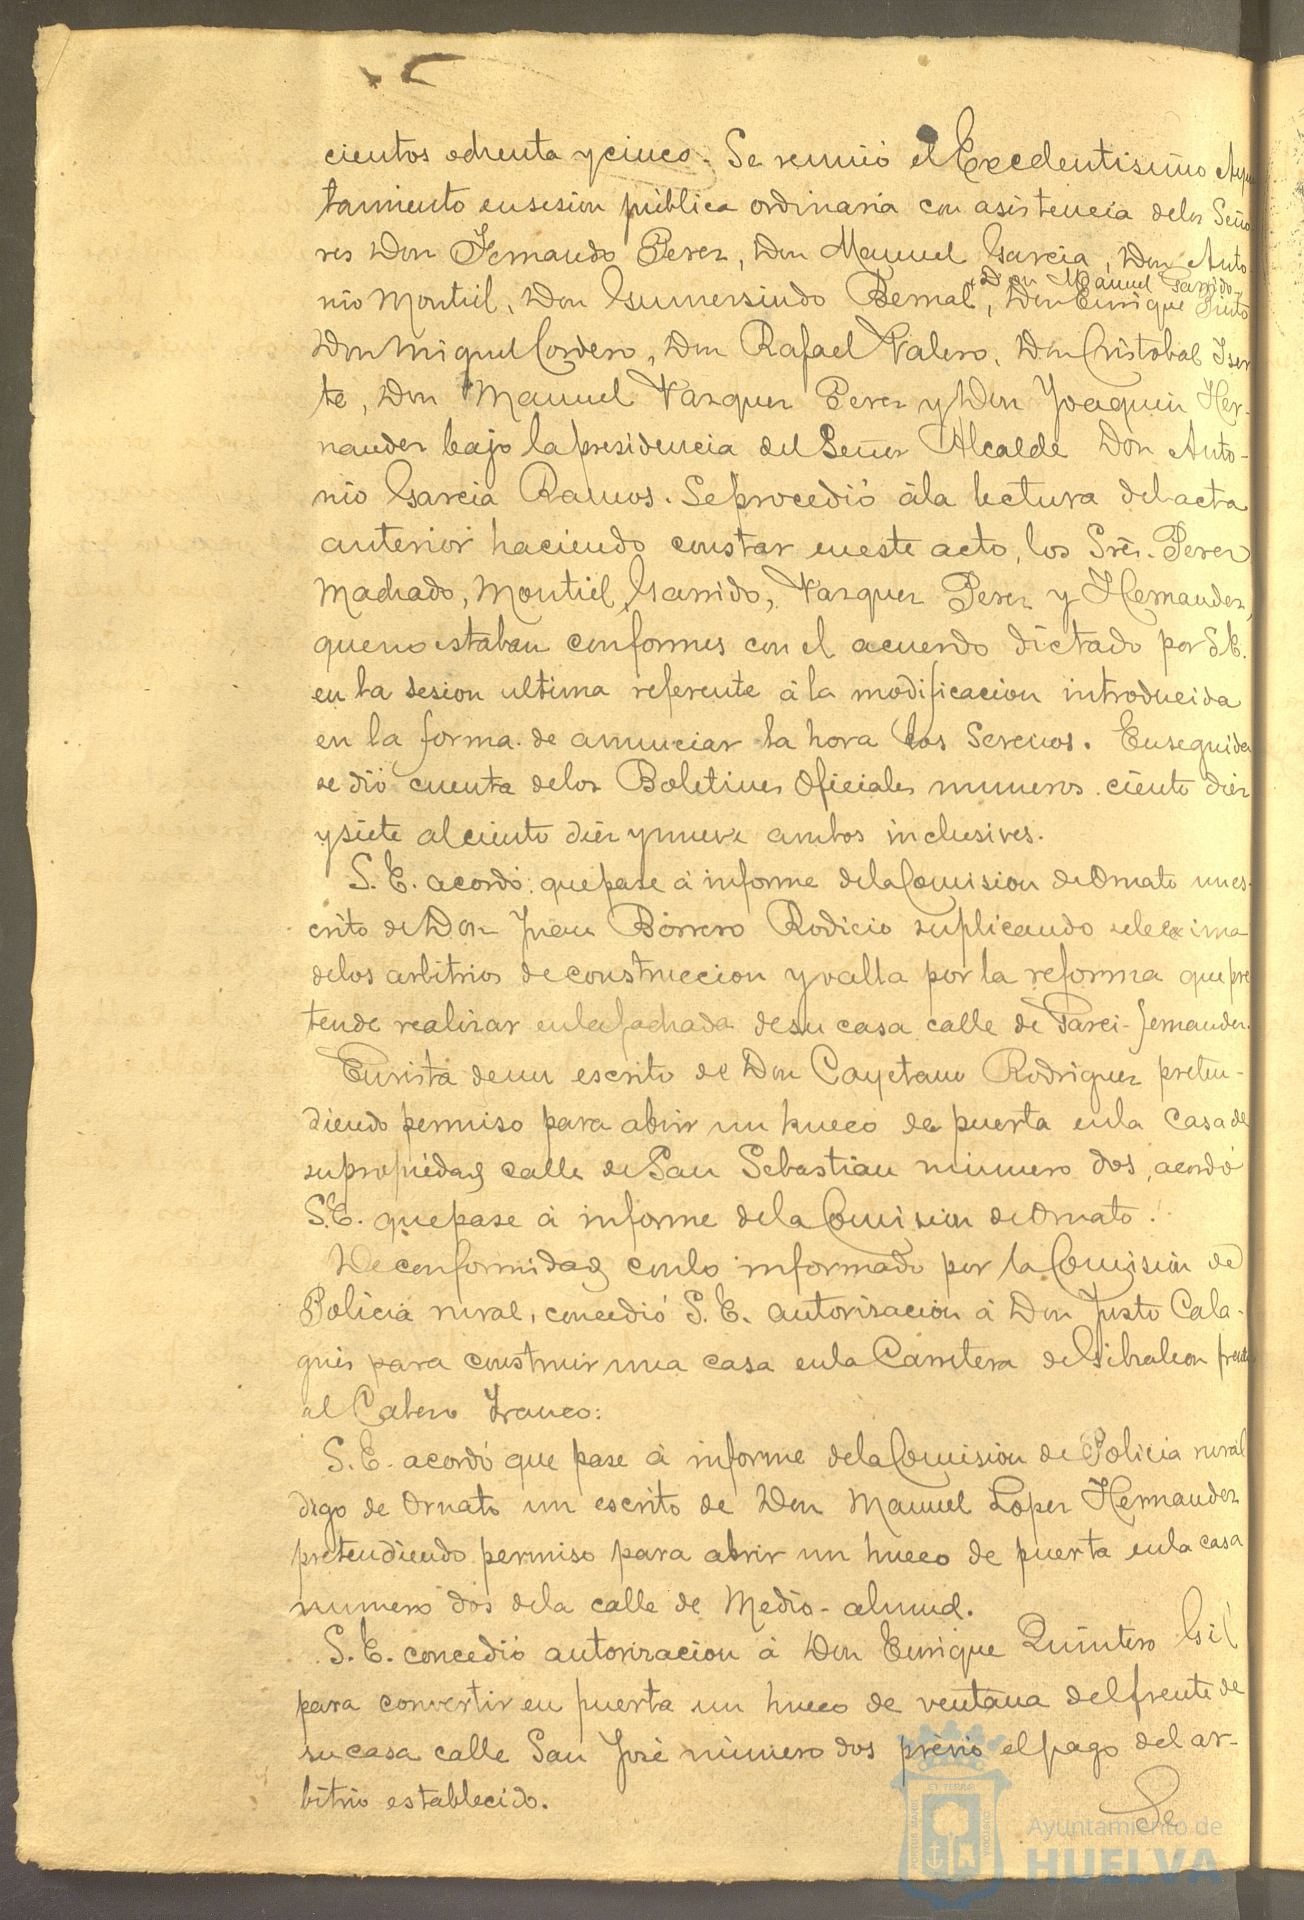 cientos ochenta y cinco. Se reunió el Excelentisimo Ayun
tamiento en sesion pública ordinaria con asistencia de los Seño
res Don Fernando Perez, Don Manuel Garcia, Don Anto-
Don Manuel Garrido
nio Montiel, Don Gumersindo Bernal, Don Enrique Pinto
Don Miguel Cordero, Don Rafael Valero, Don Cristobal Iser
te, Don Manuel Vazquez Perez y Don Joaquin Her-
nandez bajo la presidencia del Señor Alcalde Don Anto-
nio Garcia Ramos. Se procedió á la lectura del acta
anterior haciendo constar en este acto, los Sres. Perez
Machado, Montiel, Garrido, Vazquez Perez y Hernandez,
que no estaban conformes con el acuerdo dictado por S.E.
en la sesion ultima referente á la modificacion introducida
en la forma de anunciar la hora los Serenos. Enseguida
se dió cuenta de los Boletines Oficiales numeros ciento diez
y siete al ciento diez y nueve ambos inclusives.
S. E. acordó que pase á informe de la Comision de Ornato un es-
crito de Don Juan Borrero Rodicio suplicando se le exima
de los arbitrios de construccion y valla por la reforma que pre
tende realizar en la fachada de su casa calle de Garci-fernandez.
En vista de un escrito de Don Cayetano Rodriguez preten-
diendo permiso para abrir un hueco de puerta en la casa de
su propiedad calle de San Sebastian número dos, acordó
S. E. que pase á informe de la Comision de Ornato.
De conformidad con lo informado por la Comision de
Policia rural, concedió S. E. autorizacion á Don Justo Cala-
guis para construir una casa en la Carretera de Gibraleon frente
al Cabezo Franco:
S. E. acordó que pase á informe de la Comision de Policia rural
digo de Ornato un escrito de Don Manuel Lopez Hernandez
pretendiendo permiso para abrir un hueco de puerta en la casa
numero dos de la calle de Medio-almud.
S. E. concedió autorizacion á Don Enrique Quintero Gil
para convertir en puerta un hueco de ventana del frente de
su casa calle San José número dos prévio el pago del ar-
bitrio establecido.
De
Ayuntamiento de
HUELVA